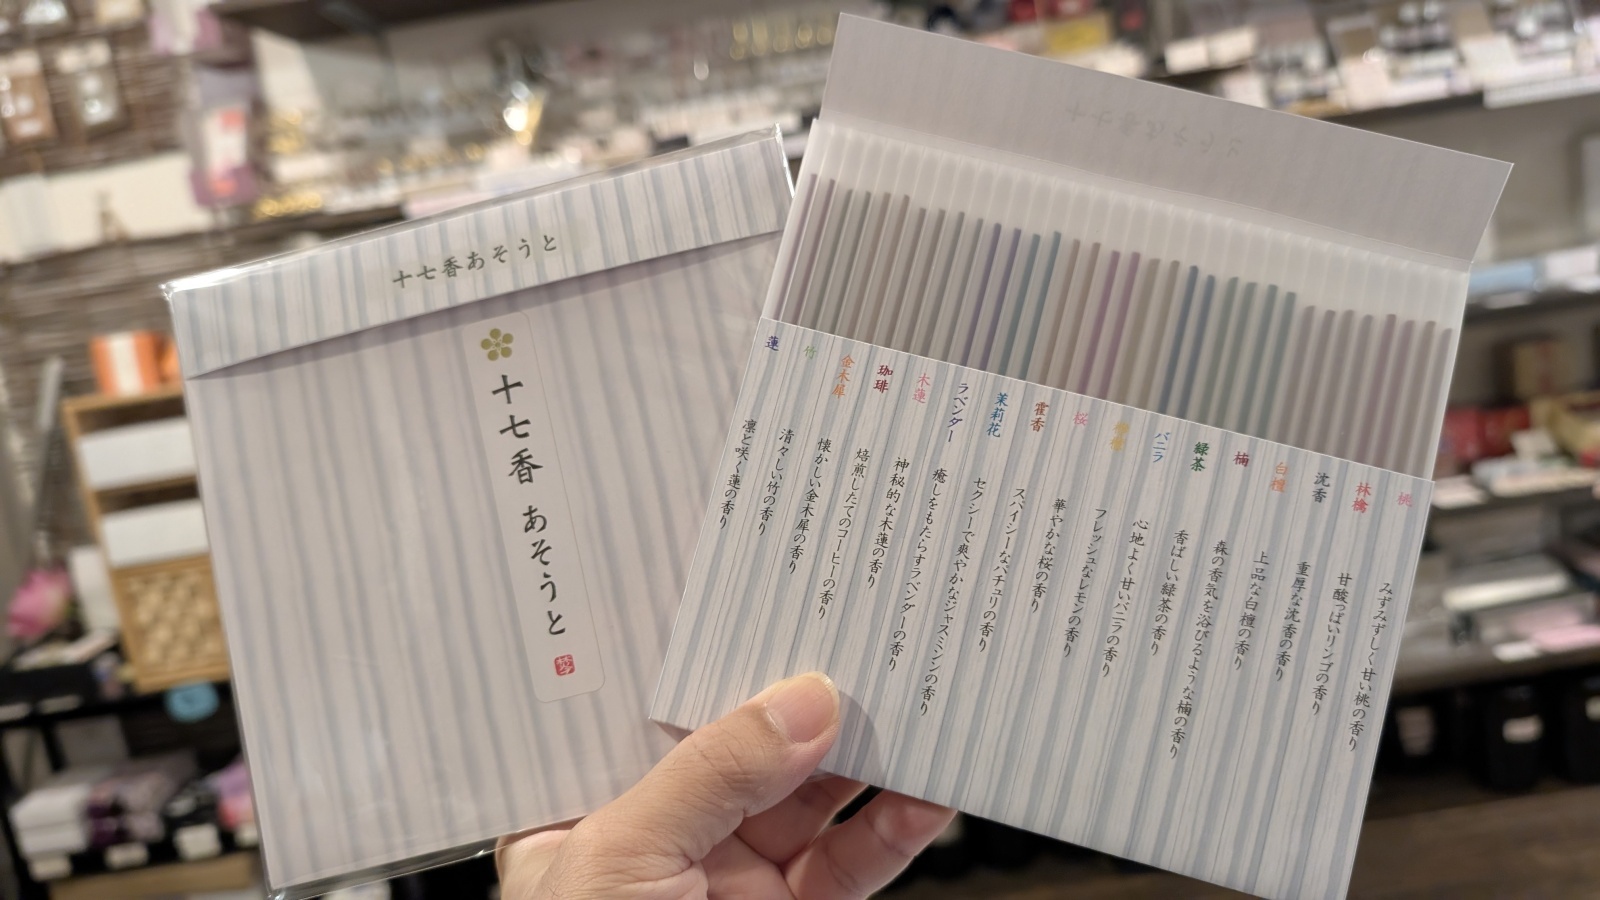 十七香あそうと
十七香 あそうと
桃
みずみずしく甘い桃の香り
林檎
甘酸っぱいリンゴの香り
沈香
重厚な沈香の香り
白檀
上品な白檀の香り
楠
森の香気を浴びるような楠の香り
緑茶
香ばしい緑茶の香り
バニラ
心地よく甘いバニラの香り
フレッシュなレモンの香り
桜
華やかな桜の香り
霍香
スパイシーなパチュリの香り
茉莉花
セクシーで爽やかなジャスミンの香り
ラベンダー
癒しをもたらすラベンダーの香り
木蓮
神秘的な木蓮の香り
珈琲
焙煎したてのコーヒーの香り
金木犀
懐かしい金木犀の香り
竹
清々しい竹の香り
蓮
凛と咲く蓮の香り